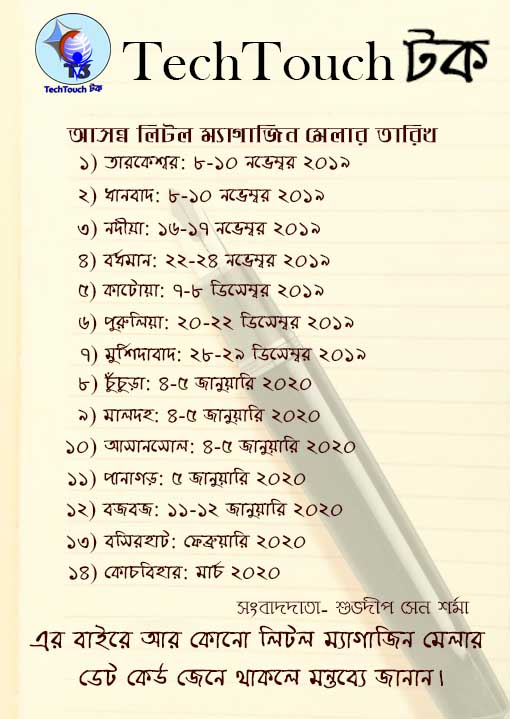 TVS
TechTouch টক
TechTouch টক
আসন্ন লিটল ম্যাগাজিন মেলার তারিখ
১) তারকেশ্বর: ৮-১০ নভেম্বর ২০১৯
২) ধানবাদ: ৮-১০ নভেম্বর ২০১৯
৩) নদীয়া: ১৬-১৭ নভেম্বর ২০১৯
৪) বর্ধমান: ২২-২৪ নভেম্বর ২০১৯
৫) কাটোয়া: ৭-৮ ডিসেম্বর ২০১৯
৬) পুরুলিয়া: ২০-২২ ডিসেম্বর ২০১৯
৭) মুর্শিদাবাদ: ২৮-২৯ ডিসেম্বর ২০১৯
৮) চুঁচুড়া: ৪-৫ জানুয়ারি ২০২০
৯) মালদহ: ৪-৫ জানুয়ারি ২০২০
১০) আসানসোল: ৪-৫ জানুয়ারি ২০২০
১১) পানাগড়: ৫ জানুয়ারি ২০২০
১২) বজবজ: ১১-১২ জানুয়ারি ২০২০
১৩) বসিরহাট: ফেব্রুয়ারি ২০২০
১৪) কোচবিহার: মার্চ ২০২০
সংবাদদাতা- শুভদীপ সেন শর্মা
এর বাইরে আর কোনো লিটল ম্যাগাজিন মেলার
ডেট কেউ জেনে থাকলে মন্তব্যে জানান।